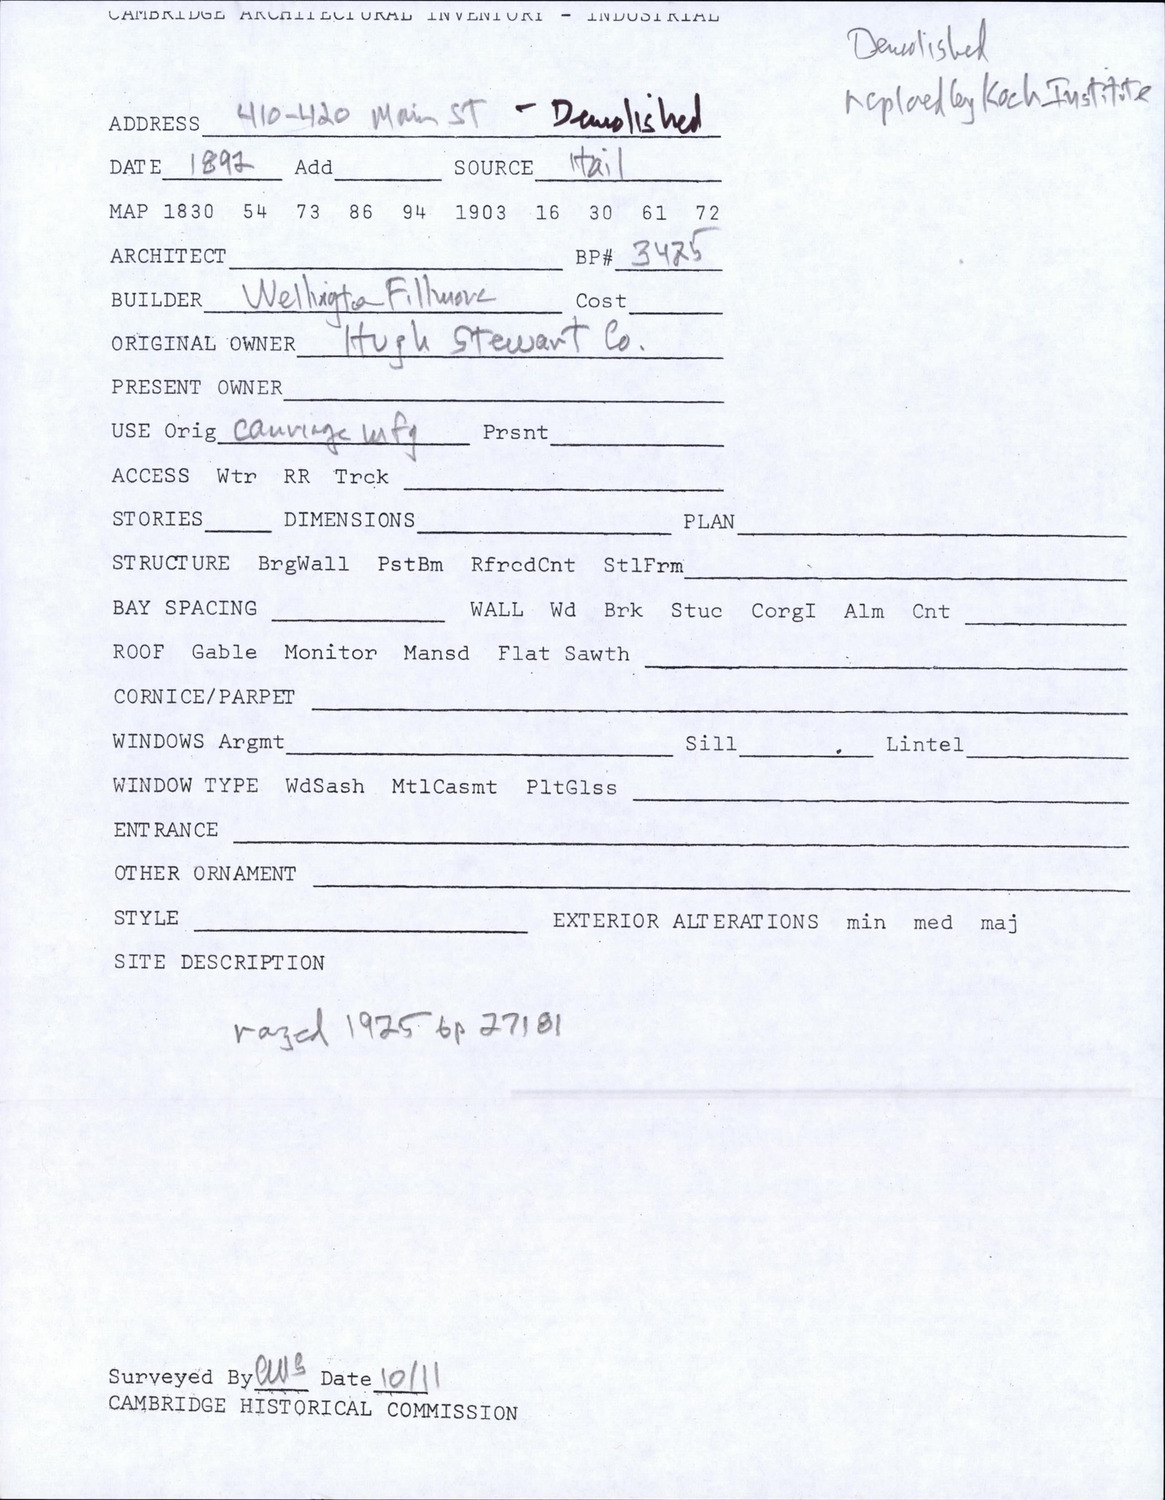 CAMBRIDGE ARCHITECTURAL INVENTORY - INDUSTRIAL
Demolished
replaced by Koch Institite
ADDRESS 410-420 Main ST - Demolished
DATE 1892 Add SOURCE Hail
MAP 1830 54 73 86 94 1903 16 30 61 72
ARCHITECT BP# 3425
BUILDER Wellington Fillmore Cost
ORIGINAL OWNER Hugh Stewart Co.
PRESENT OWNER
USE Orig carriage mfg Prsnt
ACCESS Wtr RR Trck
STORIES DIMENSIONS PLAN
STRUCTURE BrgWall PstBm RfrcdCnt StlFrm
BAY SPACING WALL Wd Brk Stuc CorgI Alm Cnt
ROOF Gable Monitor Mansd Flat Sawth
CORNICE/PARPET
WINDOWS Argmt Sill Lintel
WINDOW TYPE WdSash MtlCasmt PltGlss
ENTRANCE
OTHER ORNAMENT
STYLE EXTERIOR ALTERATIONS min med maj
SITE DESCRIPTION
razed 1925 bp 27181
Surveyed By Date 10/11
CAMBRIDGE HISTORICAL COMMISSION